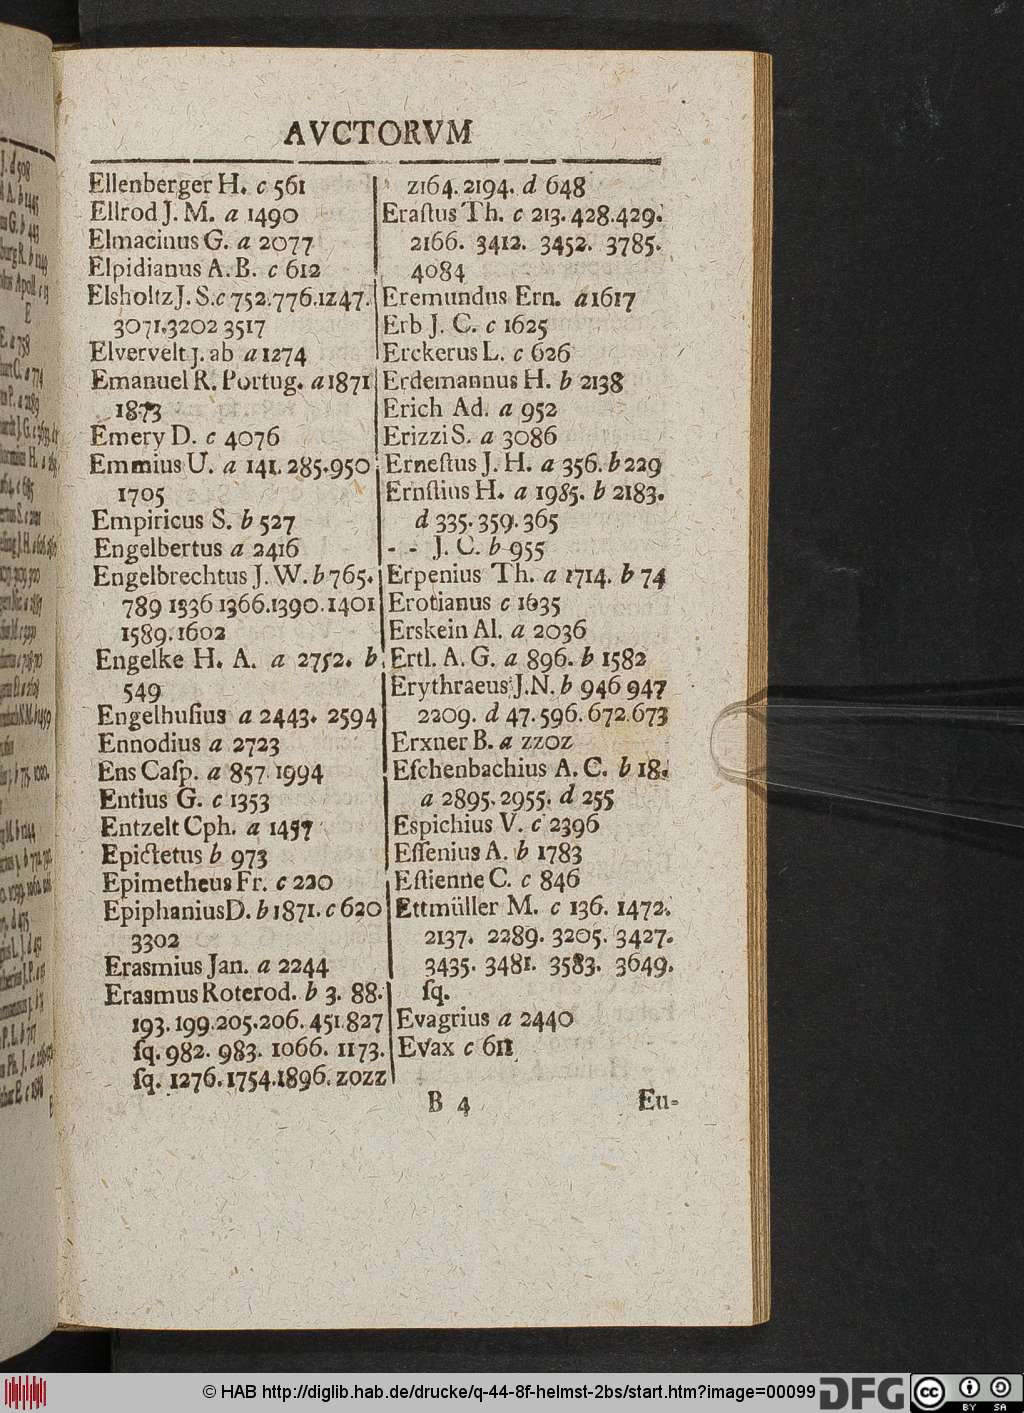 AVCTORVM
Ellenberger H. c 561
Ellrod J. M. a 1490
Elmacinus G. a 2077
Elpidianus A. B. c 612
Elsholtz J. S. c 752. 776. 1247.
3071. 3202 3517
Elvervelt J. ab a 1274
Emanuel R. Portug. a 1871
1873
Emery D. c 4076
Emmius U. a 141. 285. 950
1705
Empiricus S. b 527
Engelbertus a 2416
Engelbrechtus J. W. b 765.
789 1336 1366. 1390. 1401
1589. 1602
Engelke H. A. a 2752. b
549
Engelhuſius a 2443. 2594
Ennodius a 2723
Ens Caſp. a 857. 1994
Entius G. c 1353
Entzelt Cph. a 1457
Epictetus b 973
Epimetheus Fr. c 220
Epiphanius D. b 1871. c 620
3302
Erasmius Jan. a 2244
Erasmus Roterod. b 3. 88.
193. 199. 205. 206. 451. 827
ſq. 982. 983. 1066. 1173.
ſq. 1276. 1754. 1896. 2022
2164. 2194. d 648
Eraſtus Th. c 213. 428. 429.
2166. 3412. 3452. 3785.
4084
Eremundus Ern. a 1617
Erb J. C. c 1625
Erckerus L. c 626
Erdemannus H. b 2138
Erich Ad. a 952
Erizzi S. a 3086
Erneſtus J. H. a 356. b 229
Ernſtius H. a 1985. b 2183.
d 335. 359. 365
- - J. C. b 955
Erpenius Th. a 1714. b 74
Erotianus c 1635
Erskein Al. a 2036
Ertl. A. G. a 896. b 1582
Erythraeus J. N. b 946 947
2209. d 47. 596. 672. 673
Erxner B. a 2202
Eſchenbachius A. C. b 18.
a 2895. 2955. d 255
Espichius V. c 2396
Eſſenius A. b 1783
Eſtienne C. c 846
Ettmüller M. c 136. 1472.
2137. 2289. 3205. 3427.
3435. 3481. 3583. 3649.
ſq.
Evagrius a 2440
Evax c 611
B 4
Eu-
© HAB http://diglib.hab.de/drucke/q-44-8f-helmst-2bs/start.htm?image=00099
DFG
cc BY SA